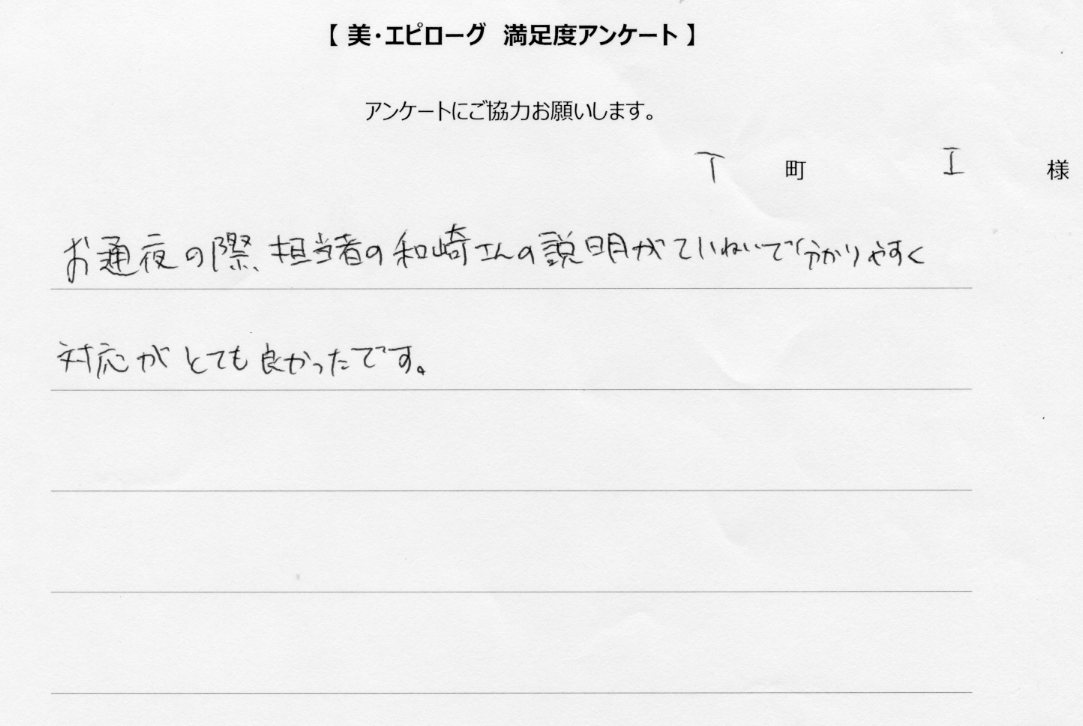 【 美・エピローグ 満足度アンケート 】
アンケートにご協力お願いします。
T 町 I 様
お通夜の際、担当者の和崎さんの説明がていねいで分かりやすく
対応がとても良かったです。